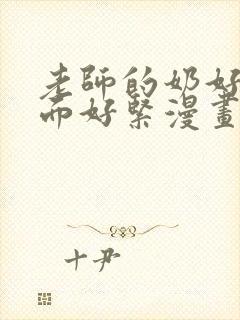 老師的奶好
而好緊漫畫
十尹